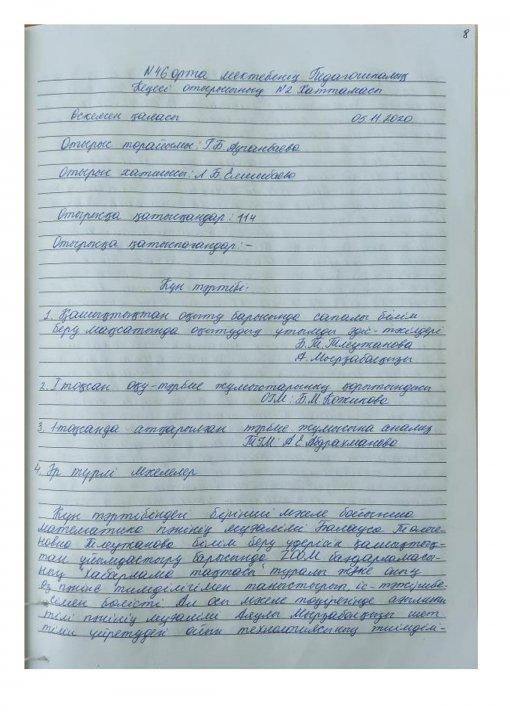 8
№46 орта мектебінің Педагогикалық
Кеңесі отырысының №2 Хаттамасы
Өскемен қаласы 05.11.2020
Отырыс төрайымы: Г Б Ауганбаева
Отырыс хатшысы: Л Б Елемебаева
Отырысқа қатысқандар: 114
Отырысқа қатыспағандар: -
Күн тәртібі:
1. Қашықтықтан оқыту барысында сапалы білім
беру мақсатында оқытудың ұтымды әдіс-тәсілдері
Б.Т.Тлеужанова
А.Мырзабекқызы
2. I тоқсан оқу-тәрбие жұмыстарының қорытындысы
ОІМ: Б.М Кожикова
3. 1-тоқсанда атқарылған тәрбие жұмысына анализ
ТІМ: А Е Абдрахманова
4. Әр түрлі мәселелер
Күн тәртібінден бірінші мәселе бойынша
математика пәнінің мұғалімі Бақтытовна
Тлеужанова білім беру үдерісін қашықтық-
тан ұйымдастыру барысында ZOOM бағдарламасы-
ның хабарлама тақтасы туралы және оның
өз пәніне тиімділігімен таныстырып, іс-тәжірибе-
сімен бөлісті Ал осы мәселе төңірегінде ағылшын
тілі пәнінің мұғалімі Мырзабекқызы шет
тілін үйретудегі ойын технологиясының тиімділі-